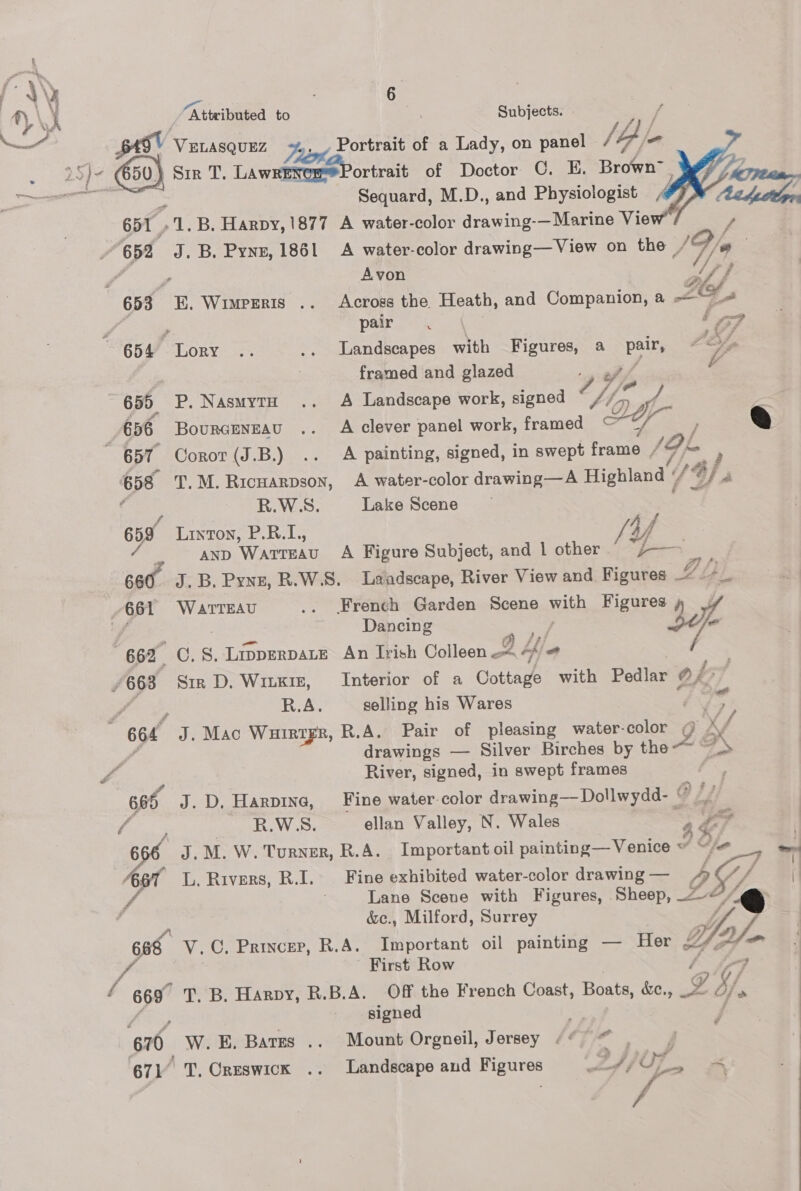 6
Attributed to Subjects.
649 VELASQUEZ Portrait of a Lady, on panel
25)- 650 SIR T. LAWRENCE Portrait of Doctor C. E. Brown-
Sequard, M.D., and Physiologist
651 T. B. HARDY, 1877 A water-color drawing—Marine View
652 J. B. PYNE, 1861 A water-color drawing—View on the
Avon
653 E. WIMPERIS .. Across the Heath, and Companion, a
pair
654 LORY .. .. Landscapes with Figures, a pair,
framed and glazed
655 P. NASMYTH .. A Landscape work, signed
656 BOURGENEAU .. A clever panel work, framed
657 COROT (J.B.) .. A painting, signed, in swept frame
658 T. M. RICHARDSON, A water-color drawing—A Highland
R.W.S. Lake Scene
659 LINTON, P.R.I.,
AND WATTEAU A Figure Subject, and 1 other
660 J. B. PYNE, R.W.S. Landscape, River View and Figures
661 WATTEAU .. French Garden Scene with Figures
Dancing
662 C. S. LIDDERDALE An Irish Colleen
663 SIR D. WILKIE, Interior of a Cottage with Pedlar
R.A. selling his Wares
664 J. MAC WHIRTER, R.A. Pair of pleasing water-color
drawings — Silver Birches by the
River, signed, in swept frames
665 J. D. HARDING, Fine water-color drawing—Dollwydd-
R.W.S. ellan Valley, N. Wales
666 J. M. W. TURNER, R.A. Important oil painting—Venice
667 L. RIVERS, R.I. Fine exhibited water-color drawing —
Lane Scene with Figures, Sheep,
&c., Milford, Surrey
668 V. C. PRINCEP, R.A. Important oil painting — Her
First Row
669 T. B. HARDY, R.B.A. Off the French Coast, Boats, &c.,
signed
670 W. E. BATES .. Mount Orgneil, Jersey
671 T. CRESWICK .. Landscape and Figures